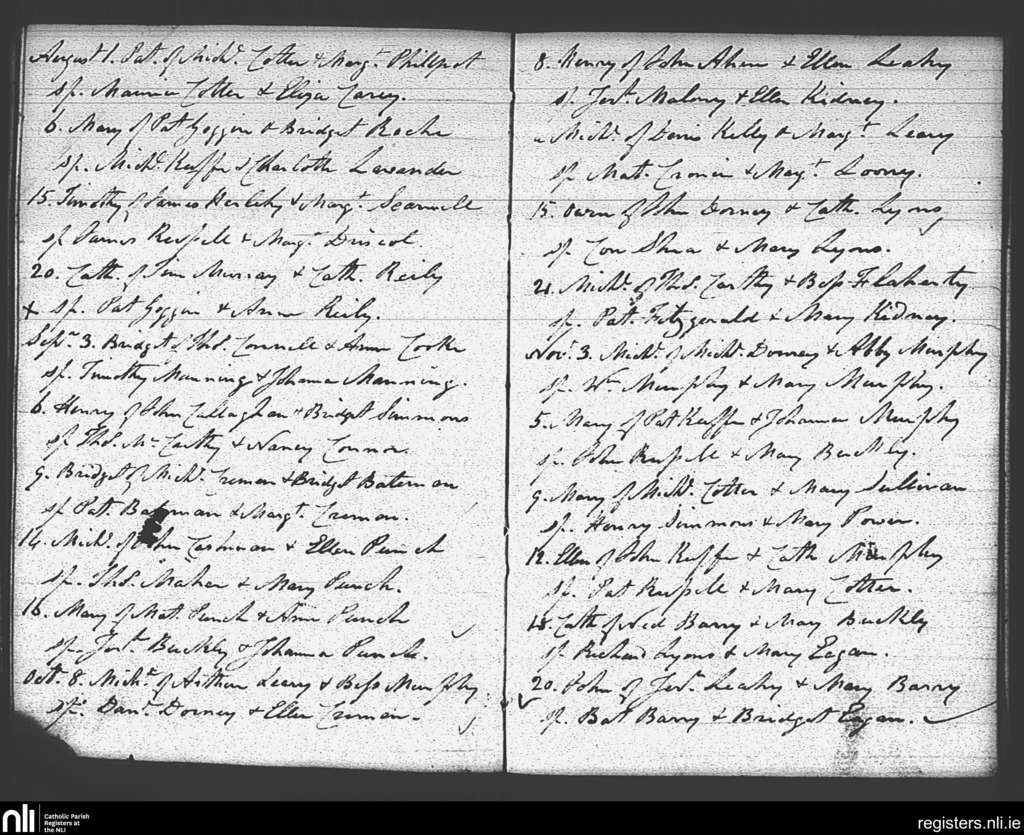 August 1. Pat. of Mich.l Cotter & Marg.t Phillpot
sp. Maurice Cotter & Eliza Carey.
6. Mary of Pat Goggin & Bridget Roche
sp. Mich.l Keeffe & Charlotte Lavender
15. Timothy of James Herlihy & Marg.t Scannell
sp James Russell & Marg.t Driscol.
20. Cath. of Tim Murray & Cath. Reily
x sp. Pat Goggin & Anne Reily.
Sep.r 3. Bridget of Tho.s Connell & Anne Cooke
sp. Timothy Manning & Johanna Manning.
6. Henry of John Callaghan & Bridget Simmons
sp Tho.s Mc Carthy & Nancy Connor.
9. Bridget of Mich.l Cremen & Bridget Bateman
sp Patt. Bateman & Marg.t Cremen.
14. Mich.l of John Cashman & Ellen Punch
sp. Tho.s Maher & Mary Punch.
16. Mary of Mat. Punch & Anne Punch
sp. Jer.h Buckley & Johanna Punch.
Oct.r 8. Mich.l of Arthur Leary & Bess Murphy
sp. Dan.l Dorney & Ellen Cremen.
8. Henry of John Ahern & Ellen Leahy
sp. Jer.h Malony & Ellen Kidney.
" Mich.l of Denis Kelly & Marg.t Leary
sp. Mat. Cronin & Marg.t
15. Owen of John Dorney & Cath. Lyons
sp. Con Shea & Mary Lyons.
21. Mich.l of Tho.s Carthy & Bess Flaherty
sp. Patt. Fitzgerald & Mary Kidney.
Nov.r 3. Mich.l of Mich.l Dorney & Abby Murphy
sp. Wm Murphy & Mary Murphy.
5. Mary of Pat Keeffe & Johanna Murphy
sp. John Russell & Mary Buckley.
9. Mary of Mich.l Cotter & Mary Sullivan
sp. Henry Simmons & Mary Power.
12. Ellen of John Keeffe & Cath Murphy
sp. Pat Russell & Mary Cotter.
18. Cath of Ned Barry & Mary Buckley
sp. Richard Lyons & Mary Eagan.
20. John of Jer.h Leahy & Mary Barry
sp. Bat Barry & Bridget Eagan.
nli Catholic Parish
Registers at
the NLI
registers.nli.ie